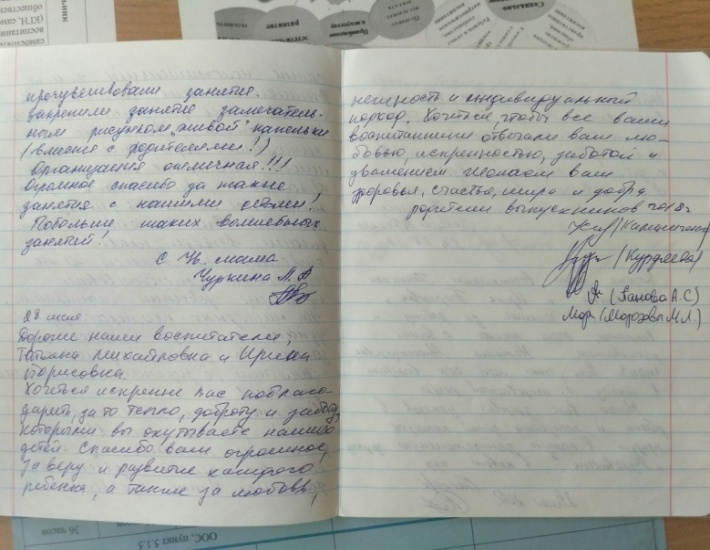 прочувствовали занятие.
Закрепили занятие замечатель-
ным рисунком "живой" капельки
(вместе с родителями!)
Организация отличная!!!
Огромное спасибо за такие
занятия с нашими детьми!
Побольше таких волшебных
занятий.
С Ув. мама
Чуркина А. В
28 мая
Дорогие наши воспитатели,
Татьяна Михайловна и Ирина
Борисовна
Хочется искренне Вас поблаго-
дарить, за то тепло, доброту и заботу,
которыми вы окутываете наших
детей. Спасибо вам огромное,
За веру и развитие каждого
ребёнка, а также за любовь,
нежность и индивидуальный
подход. Хочется, чтобы все ваши
воспитанники отвечали вам лю-
бовью, искренностью, заботой и
уважением. Желаем вам
здоровья, счастья, мира и добра
родители выпускников 2018г
(Курдяева)
(Панова А.С)
(Морозова М.Л.)
ООС, пункт 5.1.5
36 часов